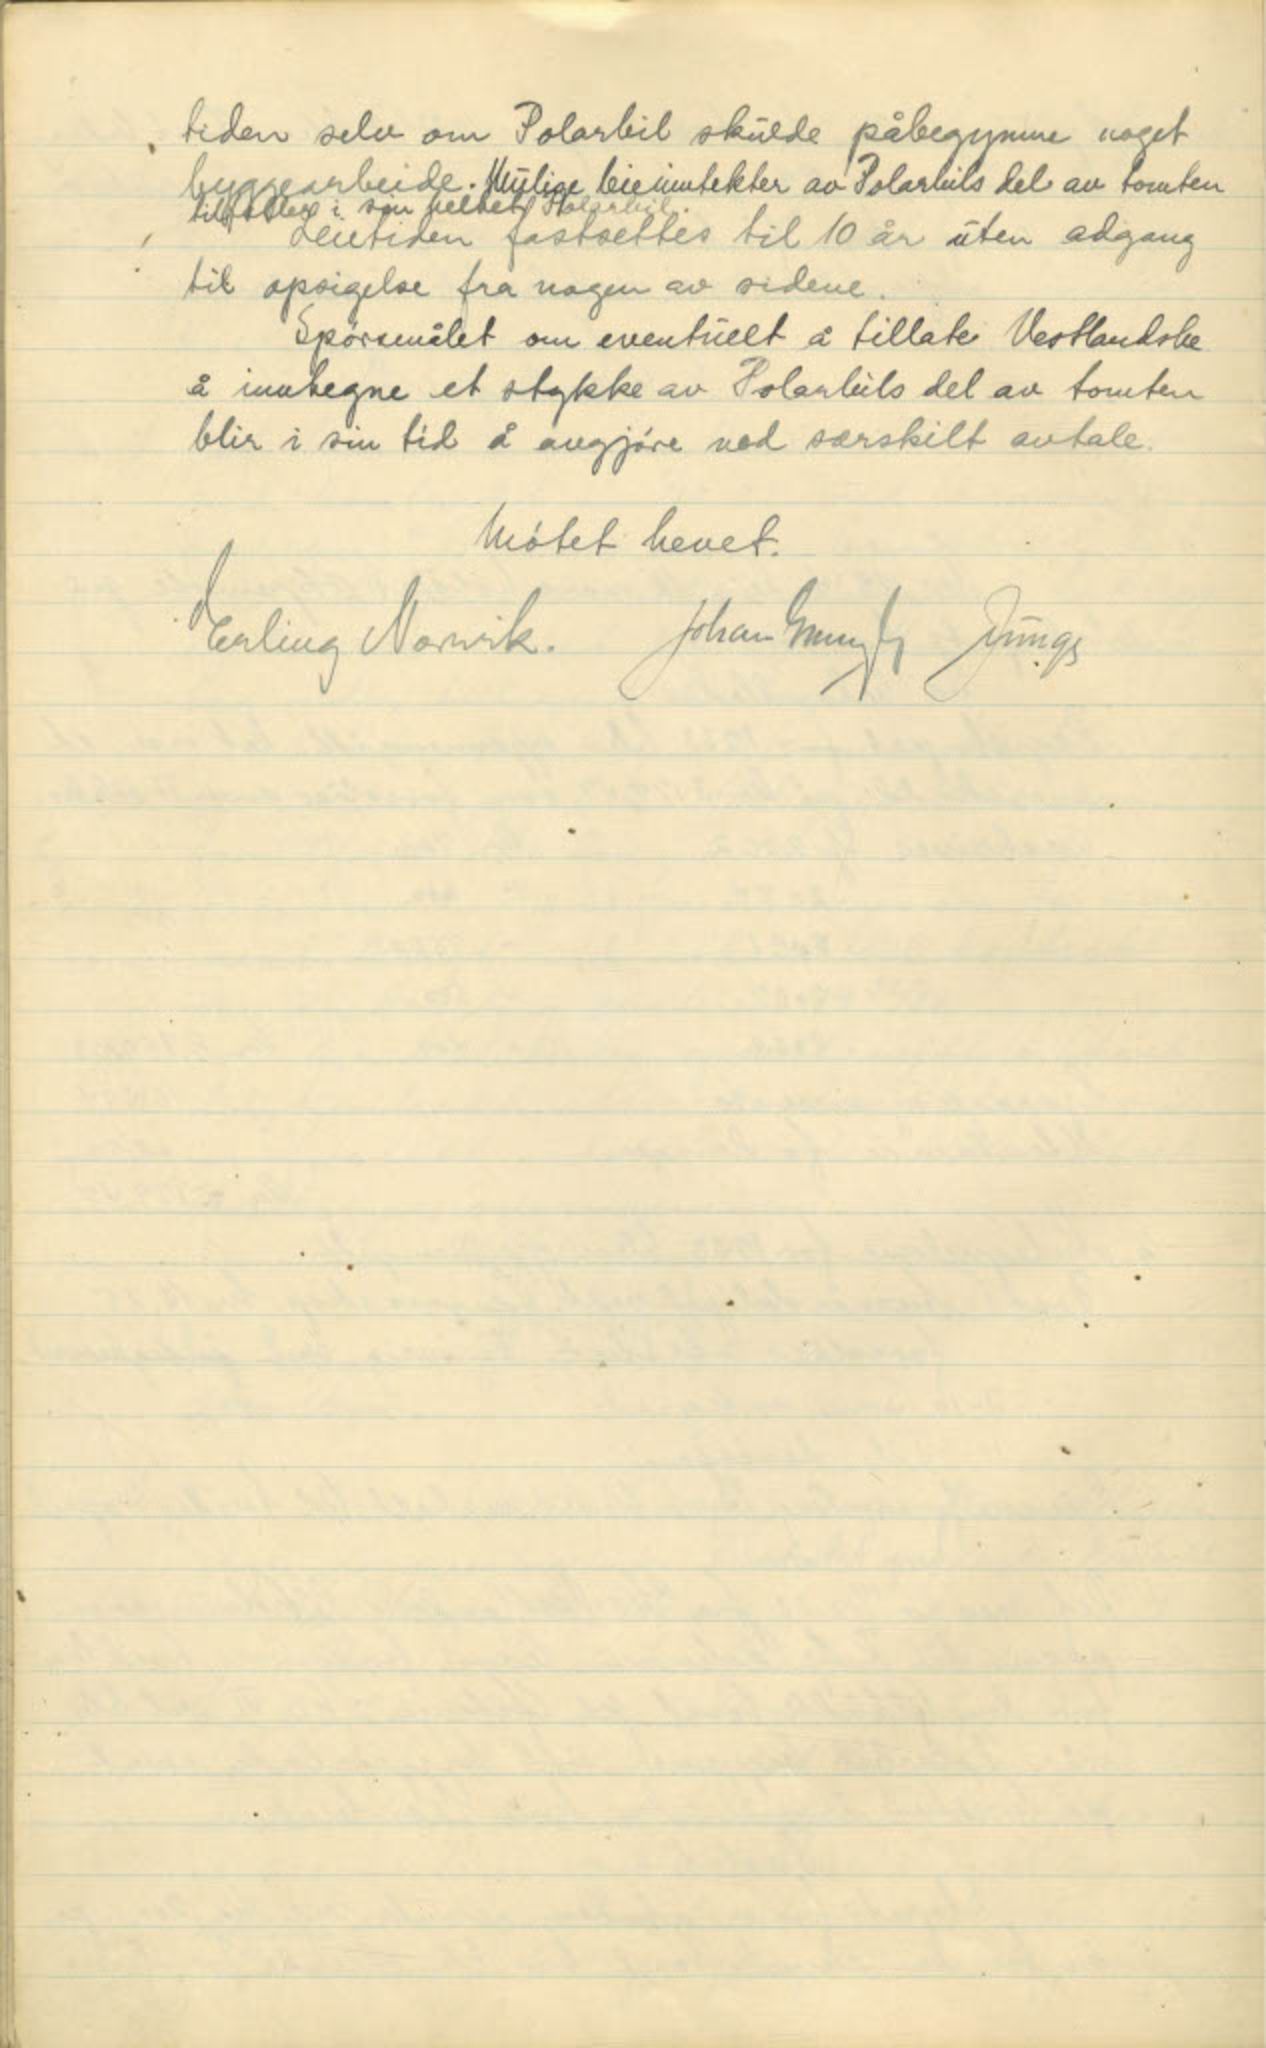 tiden selv om Polarbil skulde påbegynne noget
byggearbeide. Mulige leieinntekter av Polarbils del av tomten
tilfaller i sin helhet Polarbil.
Leietiden fastsettes til 10 år uten adgang
til opsigelse fra nogen av sidene.
Spörsmålet om eventuelt å tillate Vestlandske
å innhegne et stykke av Polarbils del av tomten
blir i sin tid å avgjöre ved særskilt avtale.
Mötet hevet.
Erling Norvik. Johan